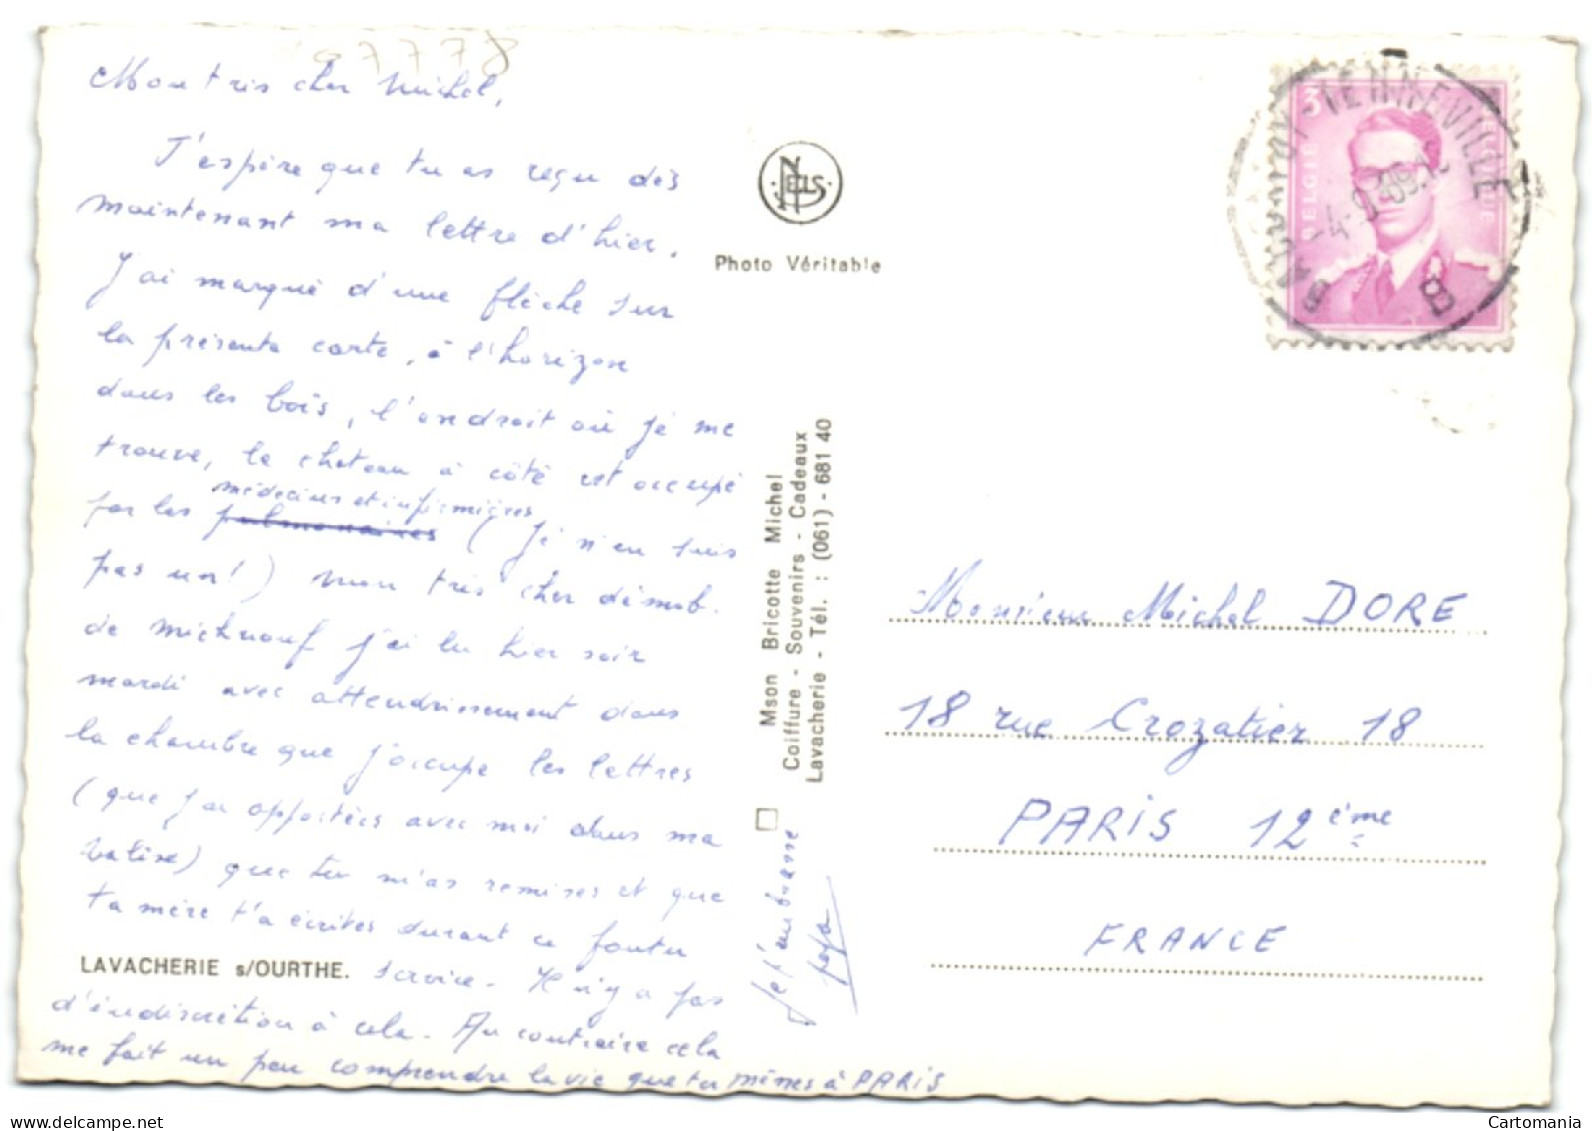 97778
Mon très cher Michel,
J'espère que tu as reçu dès
maintenant ma lettre d'hier.
J'ai marqué d'une flèche sur
la présente carte, à l'horizon
dans les bois, l'endroit où je me
trouve, le chateau à côté est occupé
médecins et infirmières
par les pulmonaires (Je n'en suis
pas un!) Mon très cher démob.
de j'ai lu hier soir
mardi avec attendrissement dans
la chambre que j'occupe les lettres
(que j'ai apportées avec moi dans ma
valise) que tu m'as remises et que
ta mère t'a écrites durant ce foutu
service. Il n'y a pas
d'indiscrétion à cela. Au contraire cela
me fait un peu comprendre la vie que tu mènes à PARIS
Je t'embrasse
papa
LAVACHERIE s/OURTHE.
NELS
Photo Véritable
Mson Bricotte Michel
Coiffure - Souvenirs - Cadeaux
Lavacherie - Tél. : (061) - 681 40
3F
BELGIE BELGIQUE
TENNEVILLE
B B
Monsieur Michel DORE
18 rue Crozatier 18
PARIS 12ème
FRANCE
Cartomania